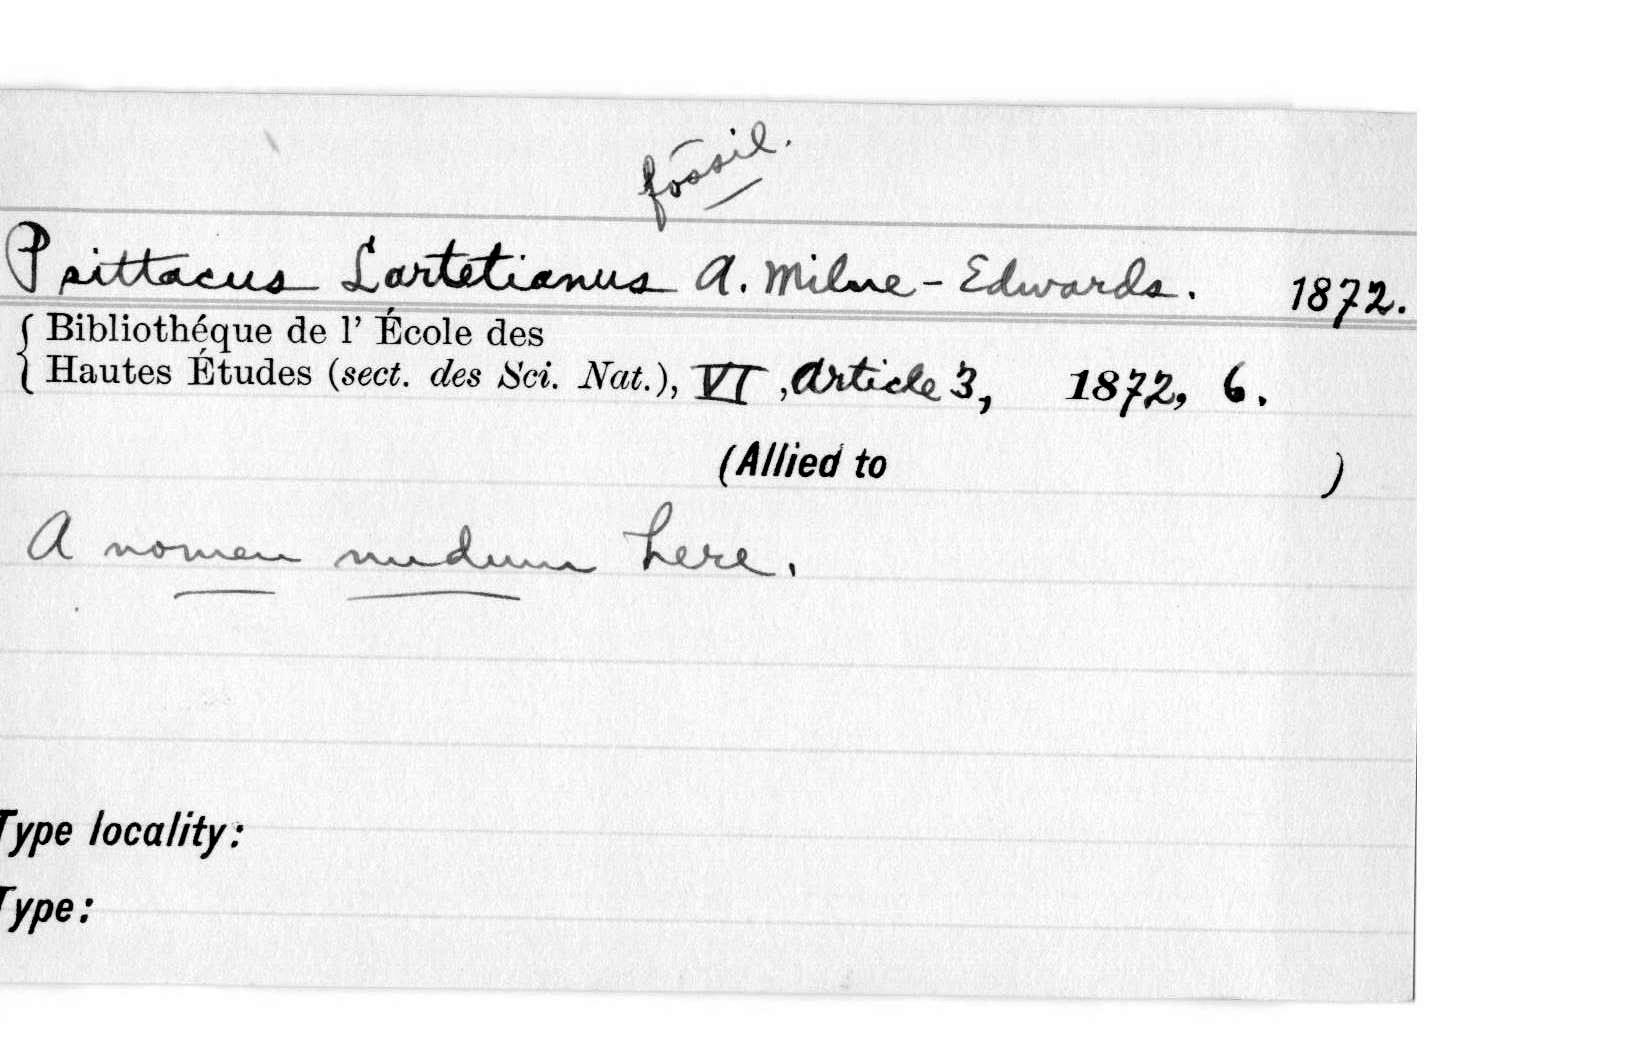 fossil.
Psittacus Lartetianus A. Milne-Edwards. 1872.
{ Bibliothéque de l' École des
Hautes Études (sect. des Sci. Nat.), VI, Article 3, 1872, 6.
(Allied to )
A nomen nudum here.
Type locality:
Type: